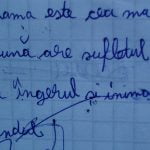 mama este cea ma
una are sufletul
Îngerul și inima